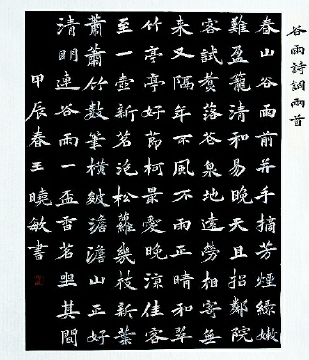 谷雨詩詞兩首
春山谷雨前并手摘芳煙綠嫩
難盈籠清和易晚天且招鄰院
客試煑落花泉地遠勞相寄無
来又隔年不風不雨正晴和翠
竹亭亭好節柯最愛晚涼佳客
至一壺新茗泡松蘿幾枝新葉
蕭蕭竹數筆橫皴澹澹山正好
清明連谷雨一盃香茗坐其間
甲辰春王曉敏書